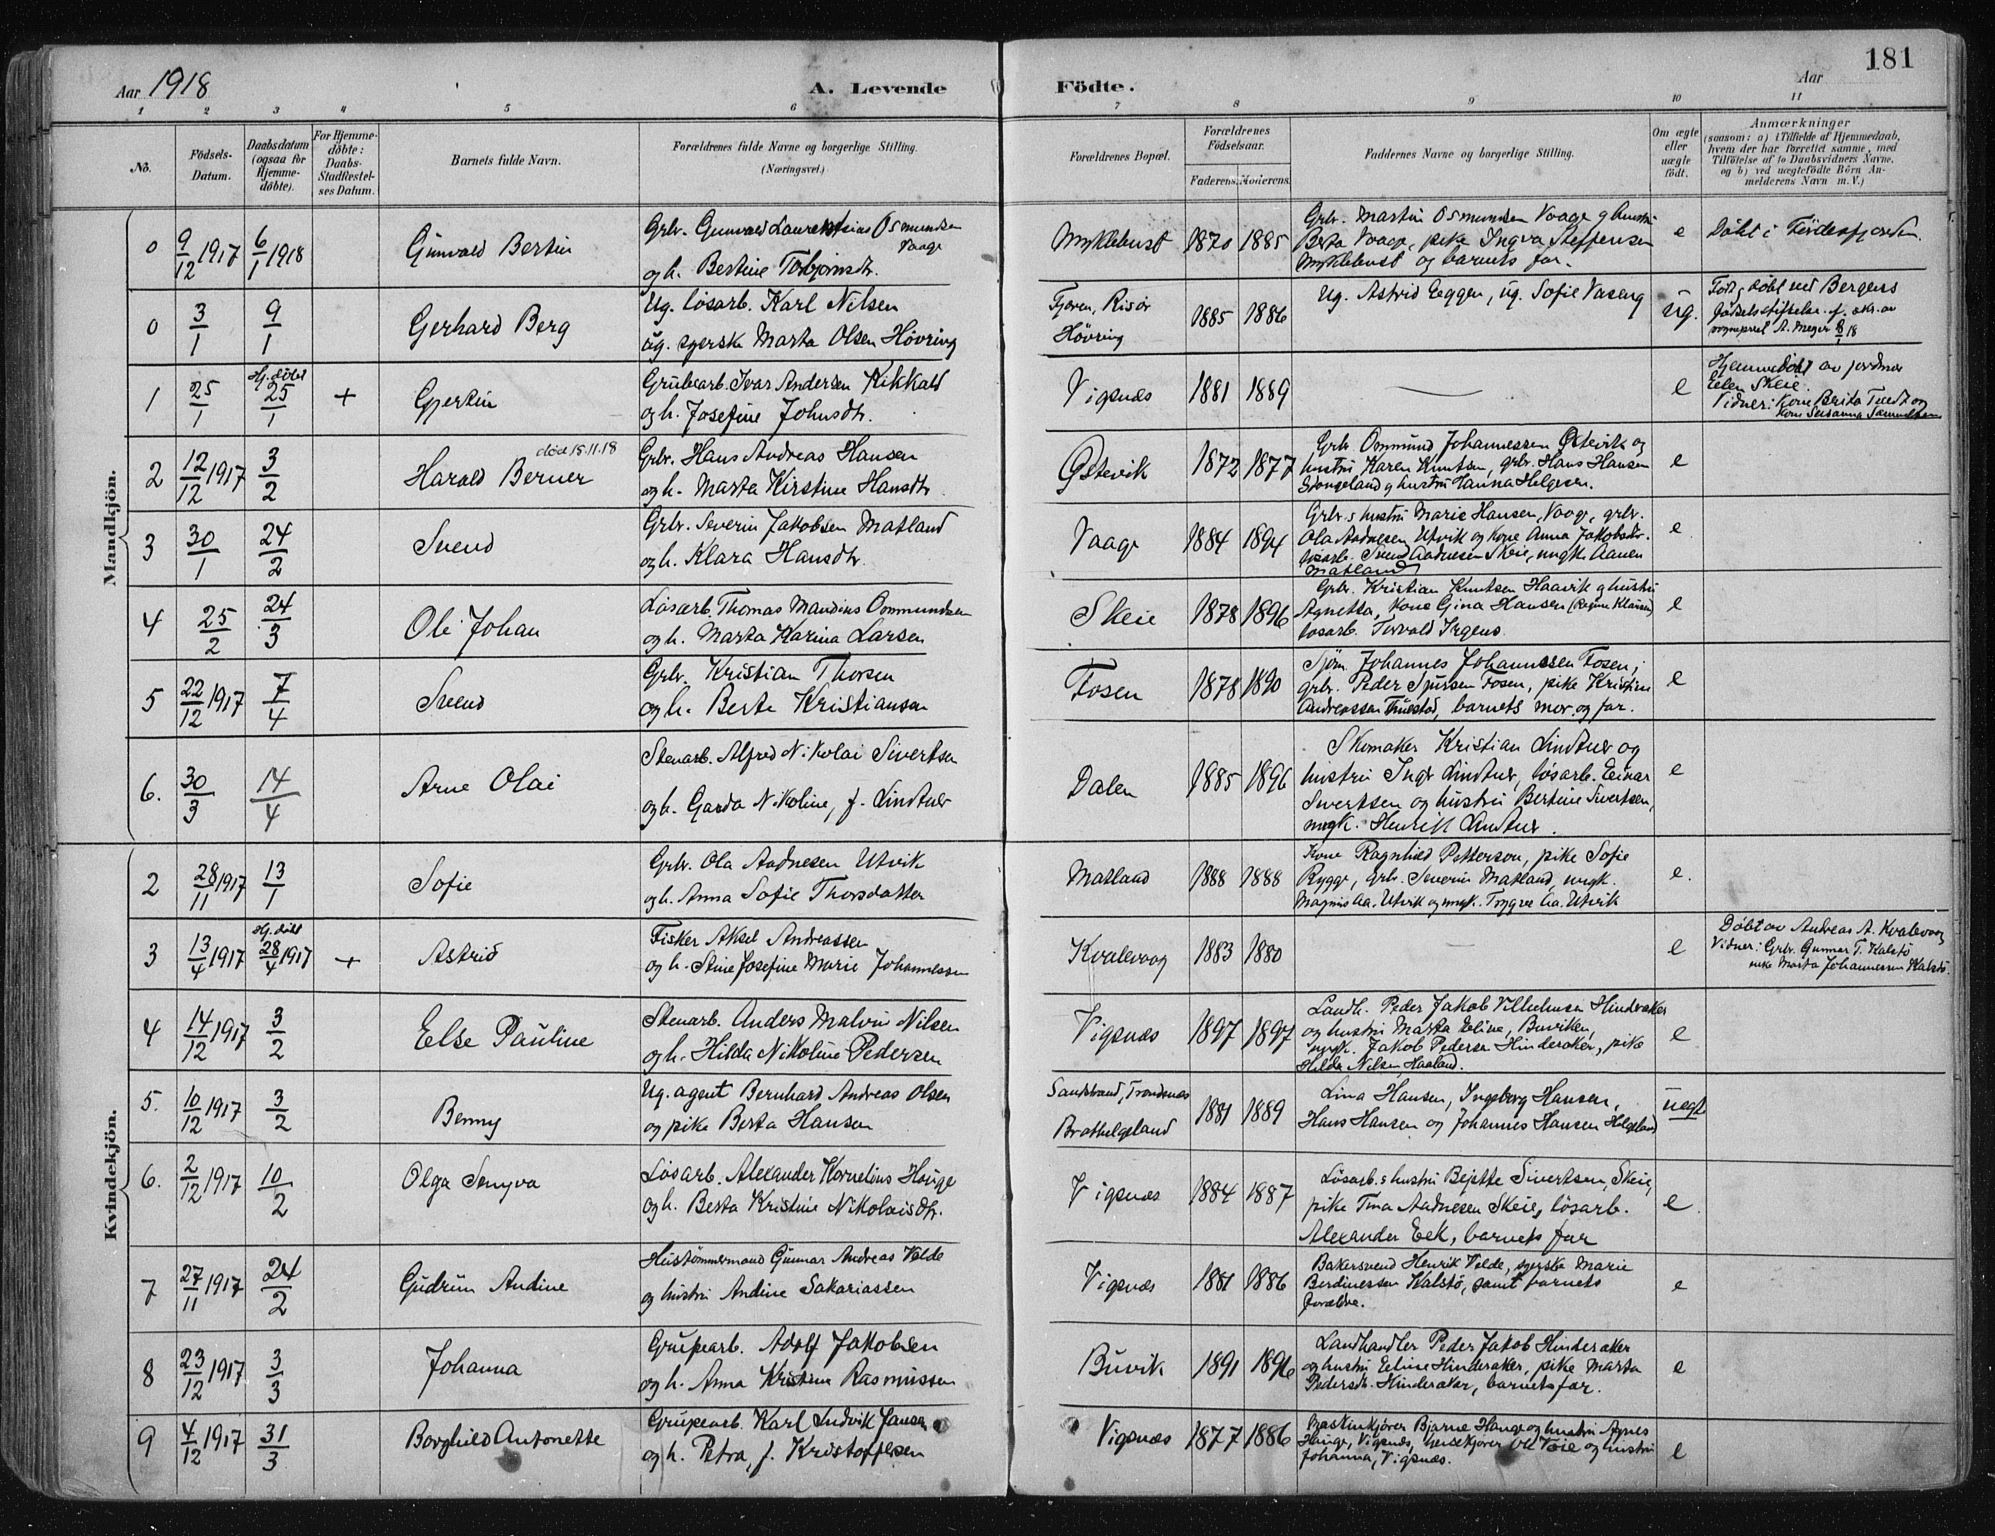 181
Aar 1918 A. Levende Födte. Aar
1 2 3 4 5 6 7 8 9 10 11
No. Födsels-Datum. Daabsdatum (ogsaa for Hjemme-döbte). For Hjemme-döbte: Daabs-Stadfæstelses Datum. Barnets fulde Navn. Forældrenes fulde Navne og borgerlige Stilling. (Næringsvei.) Forældrenes Bopæl. Forældrenes Födselsaar. Faderens. Moderens. Faddernes Navne og borgerlige Stilling. Om ægte eller uægte födt. Anmærkninger (saasom: a) i Tilfælde af Hjemmedaab, hvem der har forrettet samme, med Tilföielse af to Daabsvidners Navne. og b) ved uægtefödte Börn Anmelderens Navn m. V.)
Mandkjön.
0 9/12 1917 6/1 1918 Gunvald Bertin
Grbr. Gunvald Laurentius Osmundsen Vaage
og h. Bertine Torbjørnsdtr.
Myklebust 1870 1885
Grbr. Martin Osmundsen Vaage g hustru
Berta Vaage, pike Ingva Steffensen
Myklebust og barnets far.
e Døbt i Førdesfjorden.
0 3/1 9/1 Gerhard Berg
Ug. løsarb. Karl Nilsen
ug. syerske Marta Olsen Høvring
Fjæren, Risør
Høvring
1885 1886
Ug. Astrid Eggen, ug. Sofie Vaseng
ug.
Født g døbt ved Bergens
fødselsstiftelse
1 25/1 Hj. døbt 25/1 + Gjertin
Grubearb. Ivar Andersen Kikkald
og h. Josefine Johnsdtr.
Vigsnæs 1881 1889 — e
Hjemmedøbt av jordmor
Elen Skeie.
Vidner: Kone Brita Tvedt og
Kone Susanna Samuelsen
2 12/12 1917 3/2 Harald Berner død 15.11.18
Grbr. Hans Andreas Hansen
og h. Marta Kirstine Hansdtr.
Østevik 1872 1877
Grbr Ommund Johannessen Østevik og
hustru Karen Knutsen, grbr. Hans Hansen
Stongeland g hustru Hanna Helgesen.
e
3 30/1 24/2 Svend
Grbr. Severin Jakobsen Matland
og h. Klara Hansdtr.
Vaage 1884 1894
Grbr.s hustru Marie Hansen, Vaage, grbr.
Ola Aadnesen Utvik og Kone Anna Jakobsdtr.
løsarb. Svend Aadnesen Skeie, ungk. Aanen
Matland
e
4 25/2 24/3 Ole Johan
Løsarb. Thomas Mandius Ommundsen
og h. Marta Karina Larsen
Skeie 1878 1896
Grbr. Kristian Knutsen Haavik g hustru
Agnetta, Kone Gina Hansen (Regine Klausen)
løsarb. Torvald Irgens
e
5 22/12 1917 7/4 Svend
Grbr. Kristian Thorsen
og h. Berte Kristiansen
Fosen 1878 1890
Sjøm. Johannes Johannessen Fosen,
grbr. Peder Sjursen Fosen, pike Kristine
Andreassen, barnets mor og far.
e
6. 30/3 14/4 Arne Olai
Stenarb. Alfred Nikolai Sivertsen
og h. Garda Nikoline, f. Lindtner
Dalen 1885 1896
Skomaker Kristian Lindtner og
hustru Inger Lindtner, løsarb. Einar
Sivertsen og hustru Bertine Sivertsen,
ungk. Henrik Lindtner.
e
Kvindekjön.
2 28/11 1917 13/1 Sofie
Grbr. Ola Aadnesen Utvik
og h. Anna Sofie Thorsdatter
Matland 1888 1888
Kone Ragnhild Petterson, pike Sofie
Rygge, Grbr. Severin Matland, ungk.
Magnus Aa. Utvik og ungk. Trygve Aa. Utvik
e.
3 13/4 1917 Hj. døbt 28/4 1917 + Astrid
Fisker Aksel Andreassen
og h. Stine Josefine Marie Johannessen
Kvalevaag 1883 1880 — e
Døbt av Andreas A. Kvalevaag
Vidner: Grbr. Gunnar T. Kalstø
enke Marta Johannessen Kalstø.
4 14/12 1917 3/2 Else Pauline
Stenarb. Anders Malvin Nilsen
og h. Hilda Nikoline Pedersen
Vigsnæs 1897 1897
Landh. Peder Jakob Vilhelmsen Hinderaker
og hustru Marta Eline, Buviken,
ungk. Jakob Pedersen Hinderaker, pike
Helda Nilsen Haaland.
e
5. 10/12 1917 3/2 Benny
Ug. agent Bernhard Andreas Olsen
og pike Berta Hansen
Sandstrand, Trondenæs
Brathelgeland
1881 1889
Lina Hansen, Ingeborg Hansen,
Hans Hansen og Johannes Hansen Helgeland
uegt
6. 2/12 1917 10/2 Olga Senyva
Løsarb. Alexander Kornelius Hauge
og h. Berta Kristine Nikolaisdtr.
Vigsnæs 1884 1887
Løsarb.s hustru Bejette Sivertsen, Skeie,
pike Tina Aadnesen Skeie, løsarb.
Alexander Eek, barnets far
e
7 27/11 1917 24/2 Gudrun Andine
Hustømmermand Gunnar Andreas Velde
og hustru Andine Sakariassen
Vigsnæs 1881 1886
Bakersvend Henrik Velde, syerske Marie
Berdinessen Kalstø, samt barnets
forældre.
e
8 23/12 1917 3/3 Johanna
Grupearb. Adolf Jakobsen
og h. Anna Kristine Rasmussen
Buvik 1891 1896
Landhandler Peder Jakob Hinderaker
og hustru Eeline Hinderaker, pike Marta
Pedersdtr. Hinderaker, barnets far.
e
9 4/12 1917 31/3 Borghild Antonette
Grupearb. Karl Ludvik Jansen
og h. Petra, f. Kristoffersen
Vigsnæs 1877 1886
Maskinkjører Bjarne Hauge og hustru Agnes
Hauge, Vigsnæs, heisekjører Ole Veie og hustru
Johanna, Vigsnæs.
e